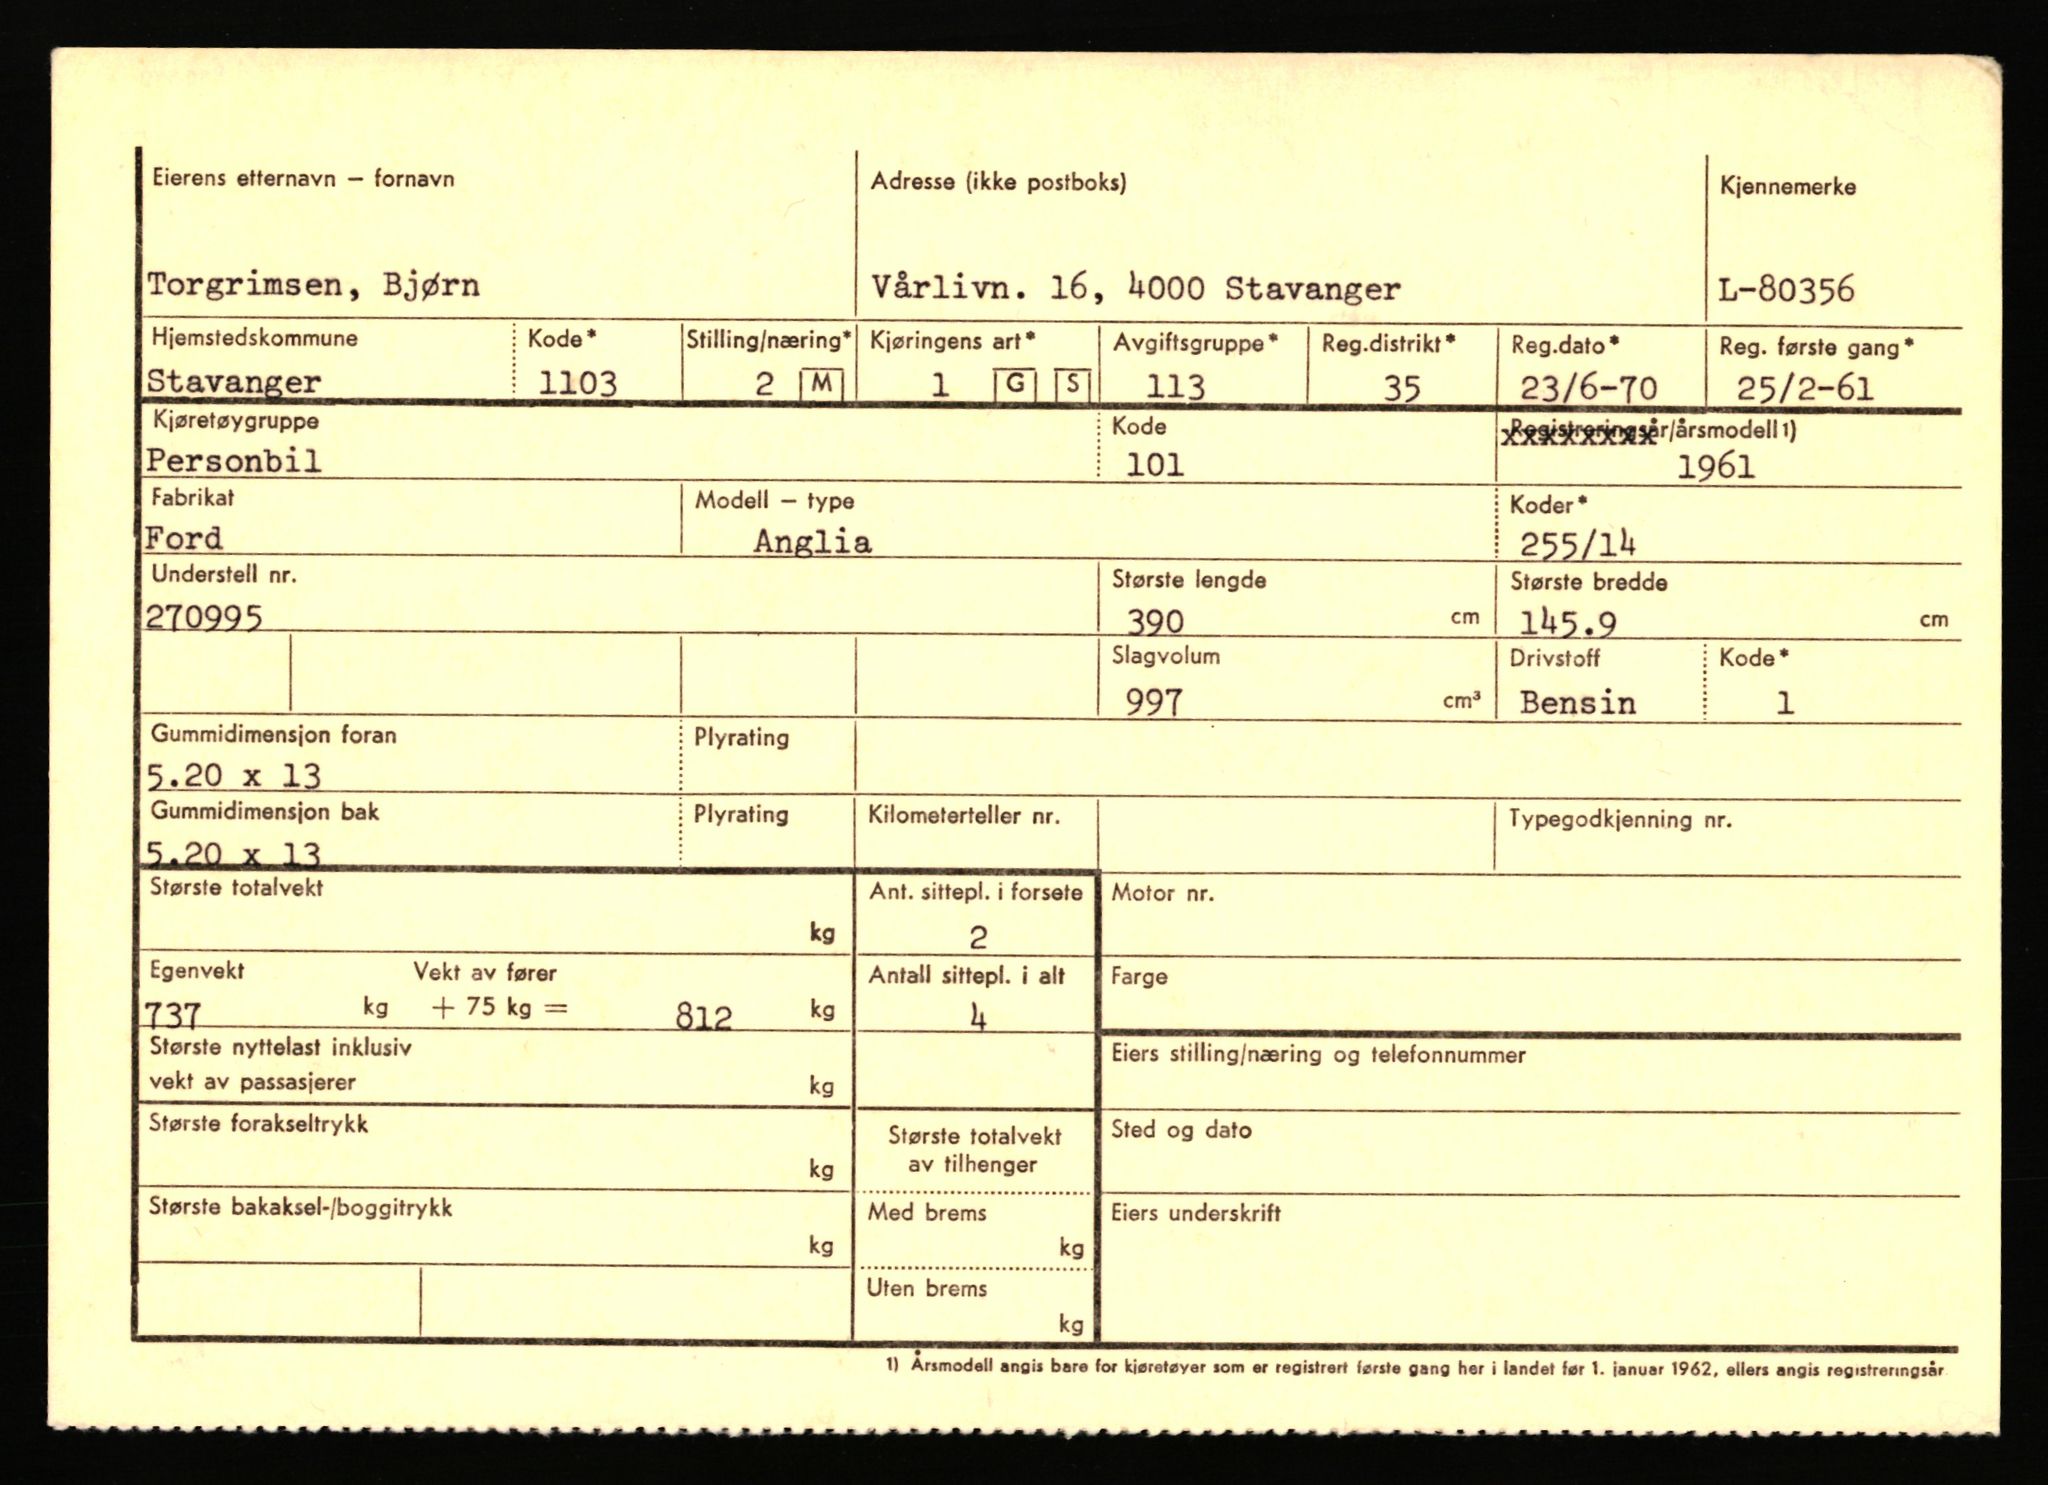 Eierens etternavn – fornavn Adresse (ikke postboks) Kjennemerke
Torgrimsen, Bjørn Vårlivn. 16, 4000 Stavanger L-80356
Hjemstedskommune Kode* Stilling/næring* Kjøringens art* Avgiftsgruppe* Reg.distrikt* Reg.dato* Reg. første gang*
Stavanger 1103 2 M 1 G S 113 35 23/6-70 25/2-61
Kjøretøygruppe Kode Registreringsår/årsmodell 1)
Personbil 101 1961
Fabrikat Modell – type Koder*
Ford Anglia 255/14
Understell nr. Største lengde Største bredde
270995 390 cm 145.9 cm
Slagvolum Drivstoff Kode*
997 cm³ Bensin 1
Gummidimensjon foran Plyrating
5.20 x 13
Gummidimensjon bak Plyrating Kilometerteller nr. Typegodkjenning nr.
5.20 x 13
Største totalvekt Ant. sittepl. i forsete Motor nr.
kg 2
Egenvekt Vekt av fører Antall sittepl. i alt Farge
737 kg + 75 kg = 812 kg 4
Største nyttelast inklusiv Eiers stilling/næring og telefonnummer
vekt av passasjerer kg
Største forakseltrykk Største totalvekt Sted og dato
kg av tilhenger
Største bakaksel-/boggitrykk Med brems Eiers underskrift
kg kg
Uten brems
kg
1) Årsmodell angis bare for kjøretøyer som er registrert første gang her i landet før 1. januar 1962, ellers angis registreringsår